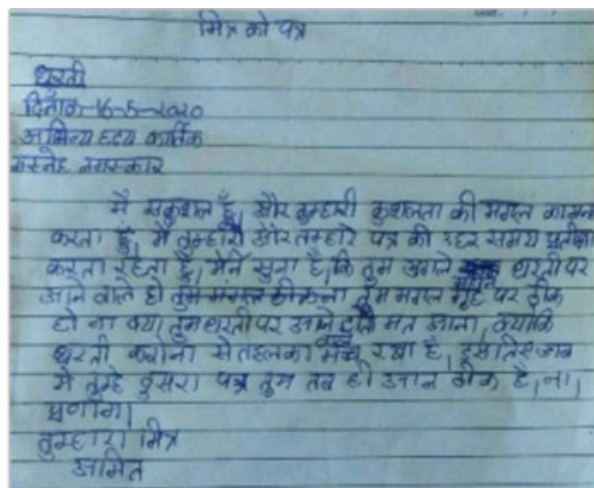 मित्र को पत्र
धरती
दिनाँक-16-5-2020
हृदय कार्तिक
सस्नेह नमस्कार
मै सकुशल हूँ, और तुम्हारी कुशलता की मंगल कामना
करता हूँ, मै तुम्हारी और तम्हारे पत्र की हर समय प्रतीक्षा
करता रहता हूँ, मैने सुना है, कि तुम अगले धरती पर
आने वाले हो तुम मंगल गृह पर ठीक
हो ना क्या, तुम धरती पर आने मत आना, क्योकि
धरती करोना से तहलका मच रखा है, इसलिए जब
मे तुम्हे दुसरा पत्र तुम तब ही आन ठीक है, ना,
प्रणाम।
तुम्हारा मित्र
अमित